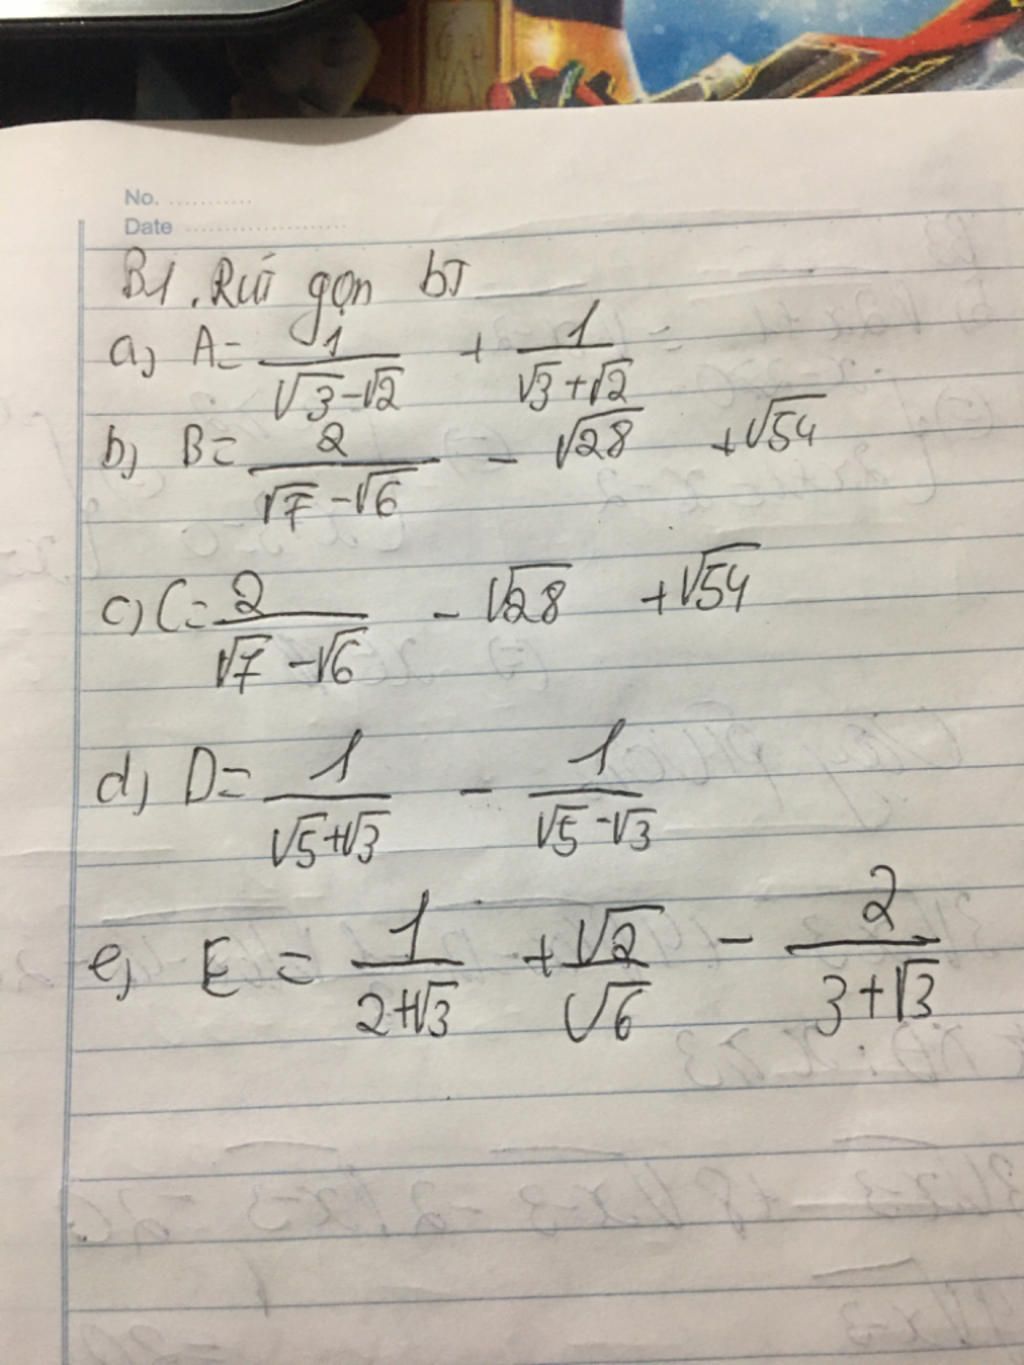 No. ............
Date ........................
B1. Rút gọn bT
a) A = 1/(√3 - √2) + 1/(√3 + √2)
b) B = 2/(√7 - √6) - √28 + √54
c) C = 2/(√7 - √6) - √28 + √54
d) D = 1/(√5 + √3) - 1/(√5 - √3)
e) E = 1/(2 + √3) + √2/√6 - 2/(3 + √3)